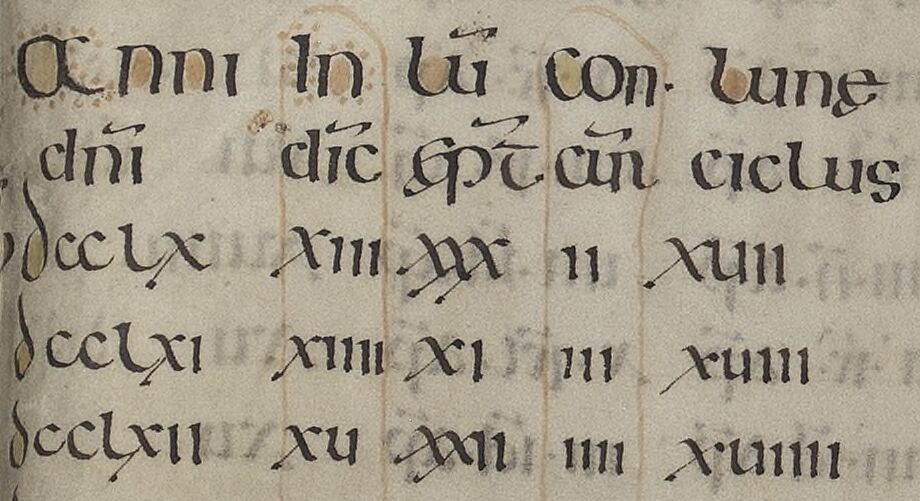 Anni In lū con· lune
dn̄i dic̄ ept̄ cur̄ ciclus
dcclx xiii xxx ii xuii
dcclxi xiiii xi iii xuiii
dcclxii xu xxii iiii xuiiii